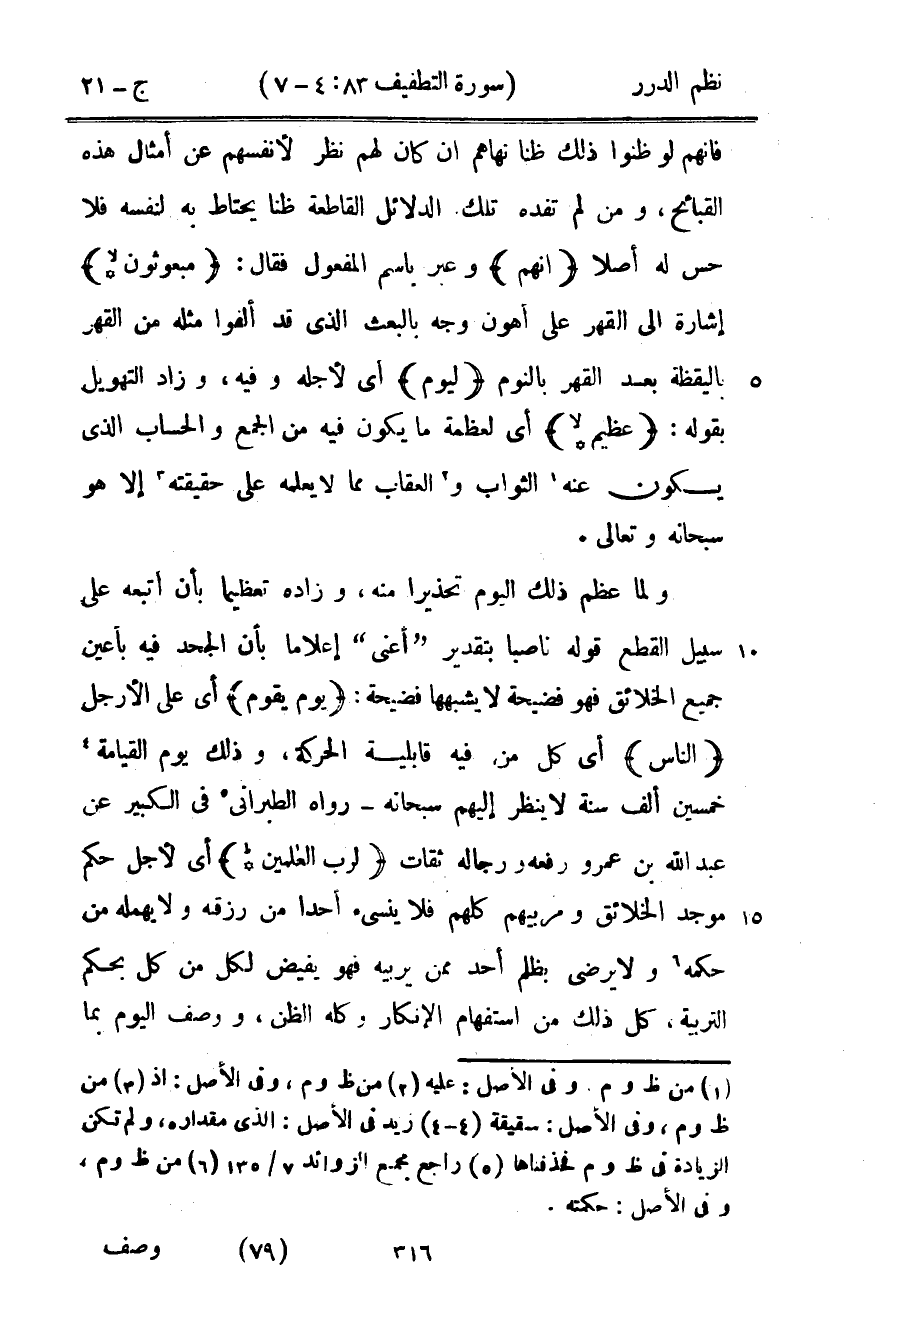 نظم الدرر (سورة التطفيف ٨٣: ٤ – ٧) ج – ٢١
فانهم لو ظنوا ذلك ظنا نهاهم ان كان لهم نظر لأنفسهم عن أمثال هذه
القبائح، و من لم تفده تلك الدلائل القاطعة ظنا يحتاط به لنفسه فلا
حس له أصلا ﴿ انهم ﴾ و عبر باسم المفعول فقال: ﴿ مبعوثون لا ﴾
إشارة الى القهر على أهون وجه بالبعث الذى قد ألفوا مثله من القهر
باليقظة بعد القهر بالنوم ﴿ ليوم ﴾ أى لأجله و فيه، و زاد التهويل ٥
بقوله: ﴿ عظيم لا ﴾ أى لعظمة ما يكون فيه من الجمع و الحساب الذى
يـكون عنه١ الثواب و٢ العقاب مما لا يعلمه على حقيقته٣ إلا هو
سبحانه و تعالى .
و لما عظم ذلك اليوم تحذيرا منه، و زاده تعظيما بأن أتبعه على
سبيل القطع قوله ناصبا بتقدير ”أعنى“ إعلاما بأن الجحد فيه بأعين ١٠
جميع الخلائق فهو فضيحة لا يشبهها فضيحة: ﴿ يوم يقوم ﴾ أى على الأرجل
﴿ الناس ﴾ أى كل من فيه قابلية الحركة، و ذلك يوم القيامة٤
خمسين ألف سنة لا ينظر إليهم سبحانه – رواه الطبرانى٥ فى الكبير عن
عبد الله بن عمرو رفعه و رجاله ثقات ﴿ لرب العٰلمين ط ﴾ أى لأجل حكم
موجد الخلائق و مربيهم كلهم فلا ينسىء أحدا من رزقه و لا يهمله من ١٥
حكمه٦ و لا يرضى بظلم أحد ممن يربيه فهو يفيض لكل من كل بحكم
التربية، كل ذلك من استفهام الإنكار و كله الظن، و وصف اليوم بما
(١) من ظ و م . و فى الأصل: عليه (٢) من ظ و م، و فى الأصل: اذ (٣) من
ظ و م، و فى الأصل: سقيقة (٤-٤) زيد فى الأصل: الذى مقداره، و لم تكن
الزيادة فى ظ و م فحذفناها (٥) راجع مجمع الزوائد ٧/ ١٣٥ (٦) من ظ و م،
و فى الأصل: حكمته .
٣١٦ (٧٩) وصف